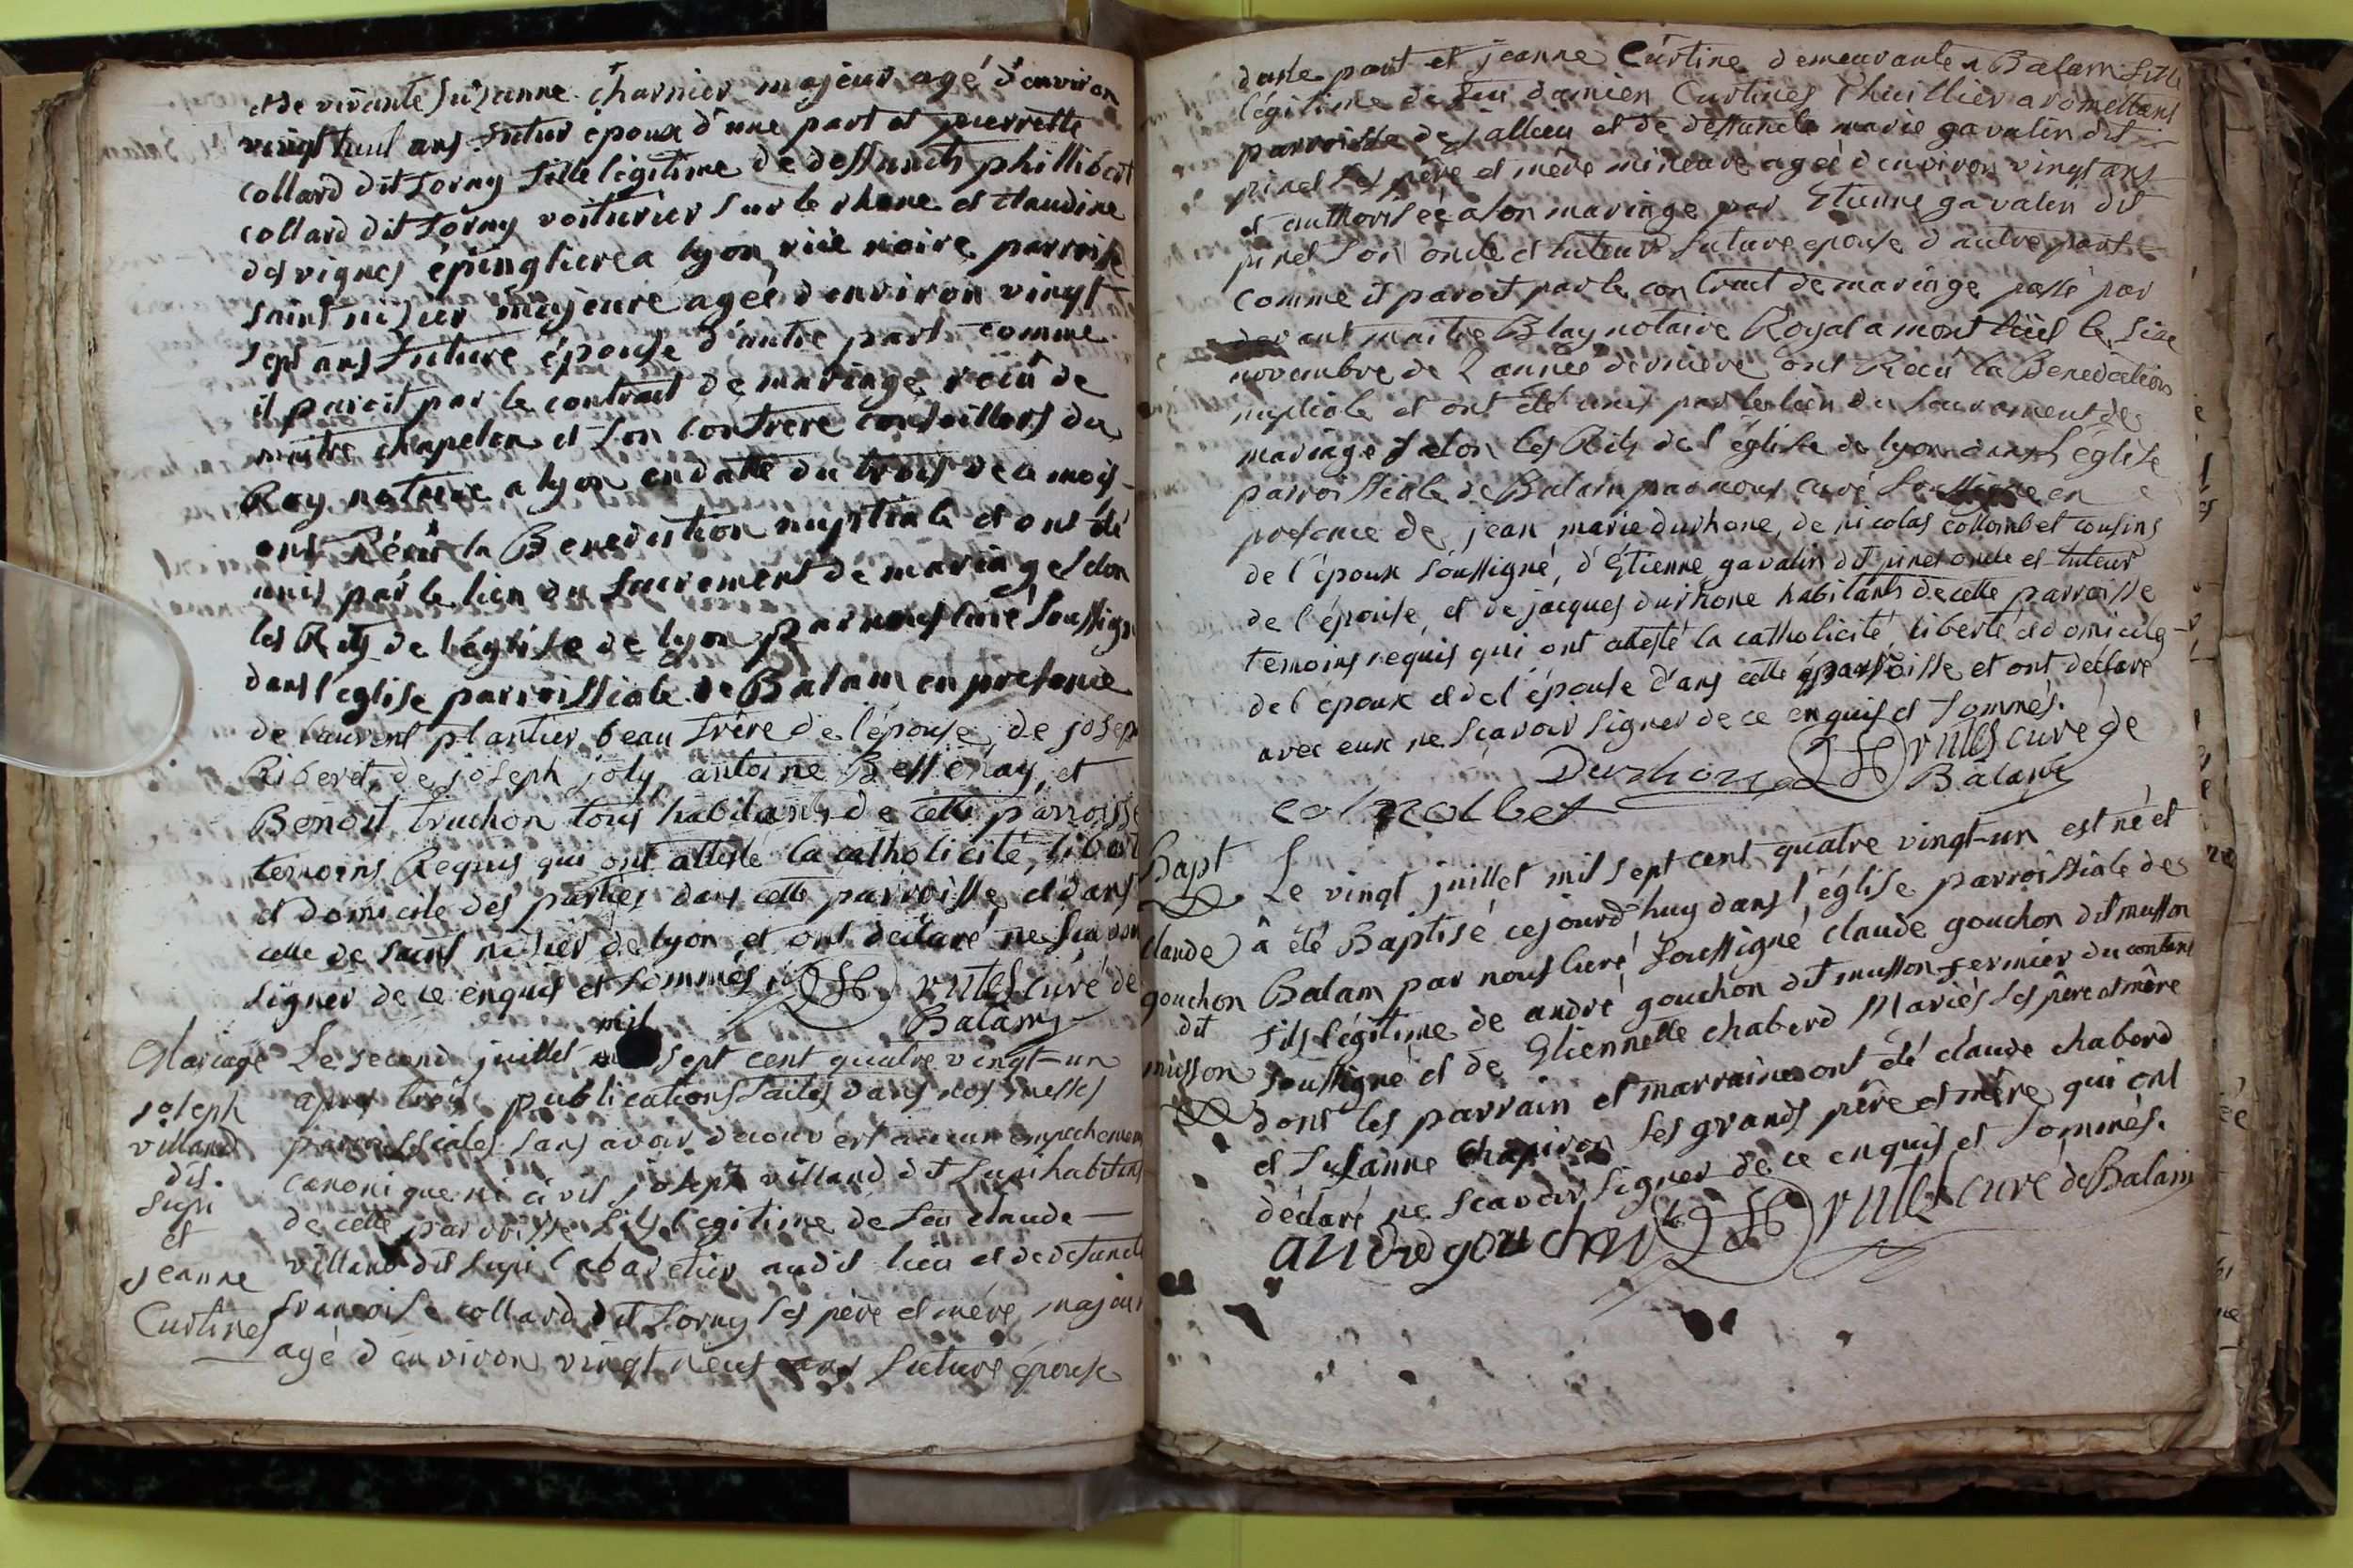 et de vivante Suzanne charnier majeur agé d'environ
vingt huit ans futur époux d'une part et pierrette
collard dit Lorny fille legitime de deffunts phillibert
collard dit Lorny voiturier sur le rhone et claudine
des vignes épinglierea lyon rüe noire parroisse
saint nizier majeure agée d'environ vingt
sept ans future épouse d'autre part comme
il paroit par le contract de mariage reçû de
maitre chapelon et son confrere conseillers du
Roy notaire a lyon en datte du trois de ce mois
ont Réçû la Benediction nuptiale et ont été
unis par le lien du sacrement de mariage selon
les Rits de l'église de lyon par nous curé soussigné
dans l'eglise parroissiale de Balam en presence
de laurent plantier beau frère de l'épouse, de joseph
Riberet, de joseph joly, antoine Bessenay, et
Benoit truchon tous habitants de cette parroisse
temoins Requis qui ont attesté la catholicité, liberté
et domicile des parties dans cette parroisse et dans
celle de saint nizier de lyon et ont declaré ne sçavoir
signer de ce enquis et sommés. curé de
Balam
Mariage
joseph
villand
dit
Supi
et
jeanne
Curtines
Le second juillet mil sept cent quatre vingt-un
apres trois publications faites dans nos messes
parroissiales sans avoir decouvert aucun empechement
canonique ni civil joseph villand dit Supi habitant
de cette parroisse fils legitime de feu claude
villand dit Supi cabaretier audit lieu et de defuncte
francoise collard dit Lorny ses père et mére, majeur
agé d'environ vingt neuf ans future épouse
d'une part et jeanne Curtine demeurante a Balam fille
légitime de feu damien Curtines
parroisse de jallieu et de deffuncte marie gavalin dit
pinet ses père et mere mineure agée d'environ vingt ans
et authorisée a son mariage par Etienne gavalin dit
pinet son oncle et tuteur future epouse d'autre part
comme il paroit par le contract de mariage passé par
devant maitre Blay notaire Royal a mont lüel le six
novembre de l'année derniere ont Reçû la Benediction
nuptiale et ont été unis par le lien du sacrement de
mariage selon les Rits de l'église de lyon dans l'église
parroissiale de Balam par nous curé soussigné en
presence de jean marie durhone, de nicolas collombet cousins
de l'époux soussigné, d'Etienne gavalin dit pinet oncle et tuteur
de l'épouse, et de jacques durhone habitants de cette parroisse
temoins requis qui ont attesté la catholicité, liberté et domicile
de l'epoux et de l'épouse dans cette parroisse et ont déclaré
avec eux ne sçavoir signer de ce enquis et sommés.
Durhone curé de
Balam
colnolbet
Bapt
claude
gouchon
dit
musson
Le vingt juillet mil sept cent quatre vingt-un est né et
â été Baptisé cejourd'huy dans l'église parroissiale de
Balam par nous curé soussigné claude gouchon dit musson
fils légitime de andré gouchon dit musson fermier du
soussigné et de Etiennette chabord Mariés ses père et mère
dont les parrain et marraine ont été claude chabord
et Susanne chapiron ses grands père et mère qui ont
déclaré ne scavoir signer de ce enquis et sommés.
andré gouchon curé de Balam